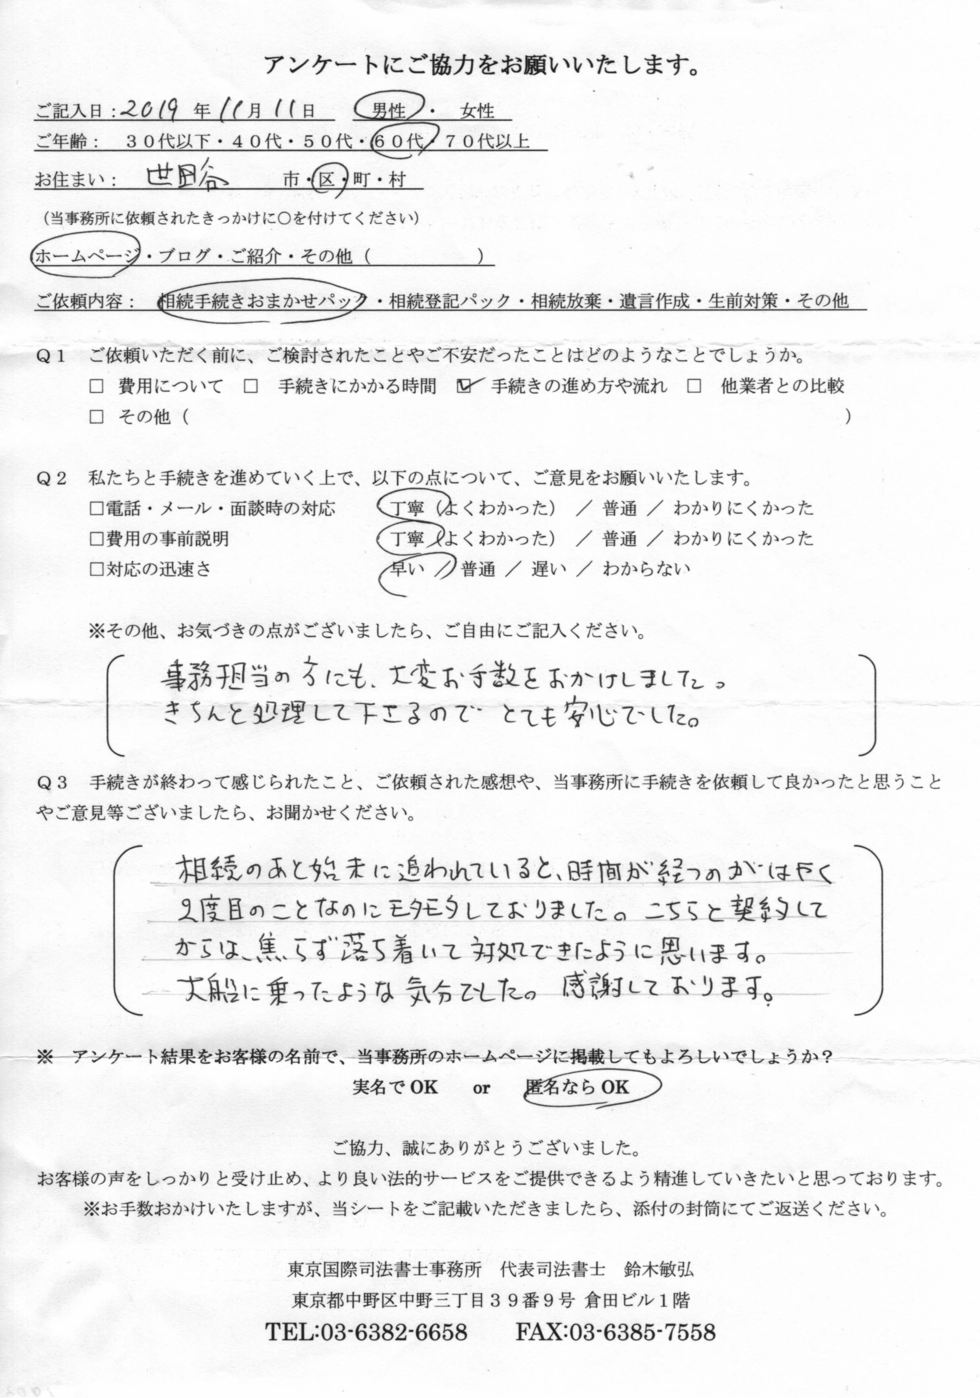 アンケートにご協力をお願いいたします。
ご記入日：2019 年 11月 11日　男性 ・ 女性
ご年齢： 30代以下・40代・50代・60代・70代以上
お住まい： 世田谷 市・区・町・村
（当事務所に依頼されたきっかけに○を付けてください）
ホームページ・ブログ・ご紹介・その他（　　　　　　）
ご依頼内容： 相続手続きおまかせパック・相続登記パック・相続放棄・遺言作成・生前対策・その他
Q1 ご依頼いただく前に、ご検討されたことやご不安だったことはどのようなことでしょうか。
□ 費用について □ 手続きにかかる時間 ☑ 手続きの進め方や流れ □ 他業者との比較
□ その他（　　　　　　）
Q2 私たちと手続きを進めていく上で、以下の点について、ご意見をお願いいたします。
□電話・メール・面談時の対応　丁寧（よくわかった）／ 普通 ／ わかりにくかった
□費用の事前説明　丁寧（よくわかった）／ 普通 ／ わかりにくかった
□対応の迅速さ　早い ／ 普通 ／ 遅い ／ わからない
※その他、お気づきの点がございましたら、ご自由にご記入ください。
事務担当の方にも、大変お手数をおかけしました。
きちんと処理して下さるので とても安心でした。
Q3 手続きが終わって感じられたこと、ご依頼された感想や、当事務所に手続きを依頼して良かったと思うこと
やご意見等ございましたら、お聞かせください。
相続のあと始末に追われていると、時間が経つのがはやく
2度目のことなのにモタモタしておりました。こちらと契約して
からは、焦らず落ち着いて対処できたように思います。
大船に乗ったような気分でした。感謝しております。
※ アンケート結果をお客様の名前で、当事務所のホームページに掲載してもよろしいでしょうか？
実名でOK or 匿名ならOK
ご協力、誠にありがとうございました。
お客様の声をしっかりと受け止め、より良い法的サービスをご提供できるよう精進していきたいと思っております。
※お手数おかけいたしますが、当シートをご記載いただきましたら、添付の封筒にてご返送ください。
東京国際司法書士事務所 代表司法書士 鈴木敏弘
東京都中野区中野三丁目39番9号 倉田ビル1階
TEL:03-6382-6658　FAX:03-6385-7558